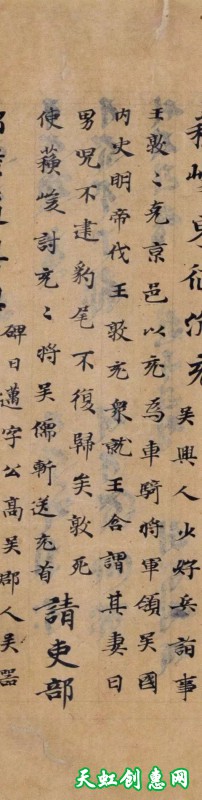 蘓峻東征沈充 吳興人少好兵諂事
王敦〻克京邑以充為車騎將軍領吳國
內史明帝伐王敦充衆就王含謂其妻曰
男兒不建豹尾不復歸矣敦死
使蘓峻討充〻將吳儒斬送充首 請吏部
碑曰邁字公高吳郡人吳器
天虹创惠网